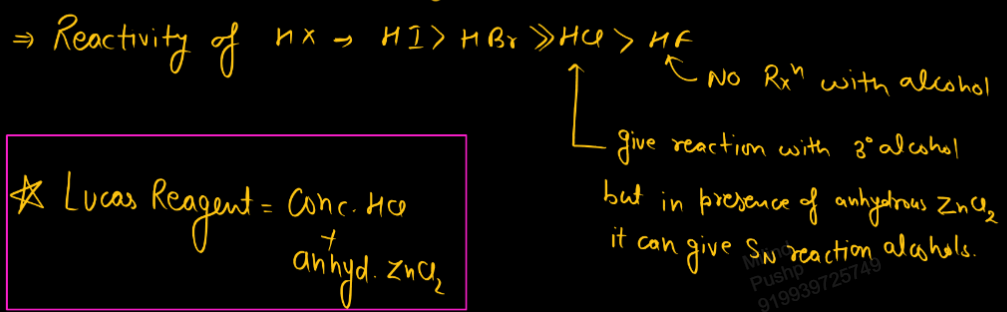 ⇒ Reactivity of HX → HI > HBr >> HCl > HF
No Rxⁿ with alcohol
give reaction with 3° alcohol
but in presence of anhydrous ZnCl₂
it can give SN reaction alcohols.
☆ Lucas Reagent = Conc. HCl
+
anhyd. ZnCl₂
Pushp
919939725749